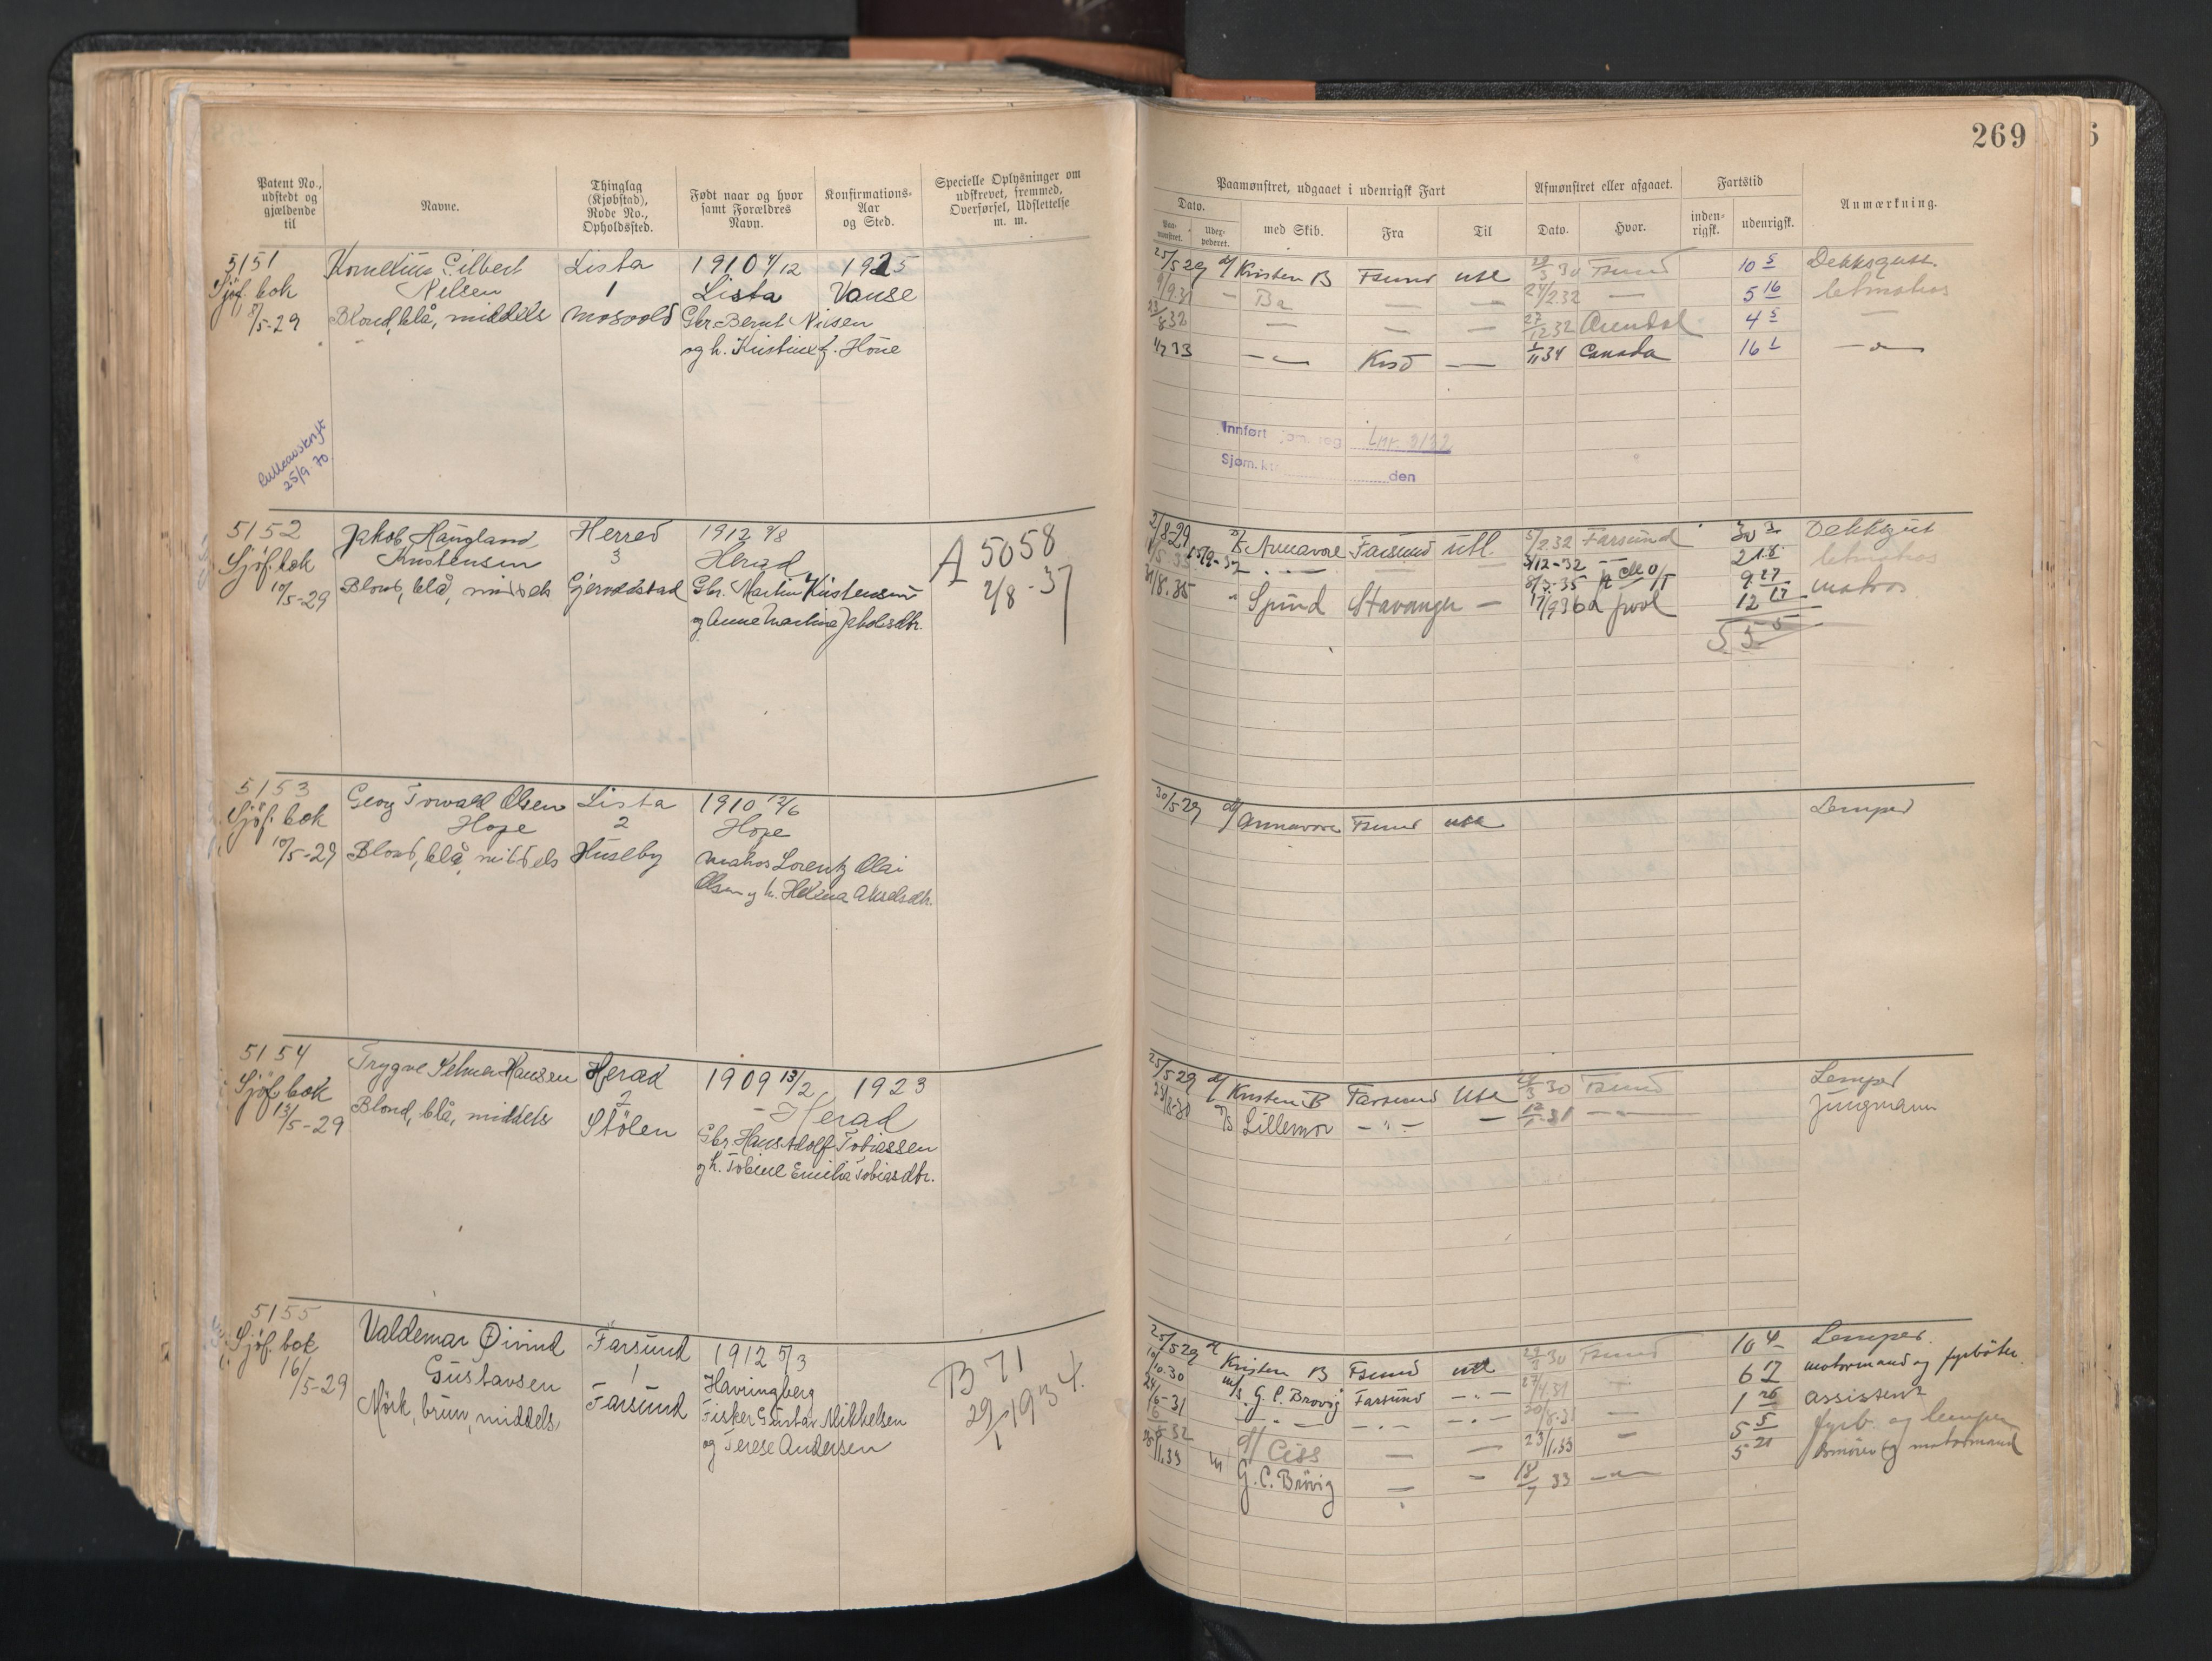 269
Patent No., udstedt og gjældende til
Navne.
Thinglag (Kjøbstad), Rode No., Opholdssted.
Født naar og hvor samt Forældres Navn.
Konfirmations-Aar og Sted.
Specielle Oplysninger om udskrevet, fremmed, Overførsel, Udslettelse m. m.
Paamønstret, udgaaet i udenrigsk Fart
Afmønstret eller afgaaet.
Fartstid
Anmærkning.
Dato.
Paa-mønstret.
med Skib.
Fra
Til
Dato.
Hvor.
inden-rigsk.
udenrigsk.
5151
Sjøf. bok
8/5-29
Rulleavskrift
25/9 70
Kornelius Gilbert
Nilsen
Blond, blå, middels
Lista
1
Mosvold
1910 4/12
Lista
Gbr. Bernt Nilsen
og h. Kristine f. Høne
1925
Vanse
25/5 29 d/ Kristen B Fsund utl 29/3 30 Fsund 10 5 Dekksgutt.
9/9 31 - Ba — — 24/2 32 — 5 16 letmatros
23/8 32 — — — 27/12 32 Arendal 4 5 —
— Krsd — 34 Canada 16 1 —
Innført sjøm. reg Lnr. 3122
Sjøm.k den
5152
Sjøf. bok
10/5-29
Jakob Haugland
Kristensen
Blond, blå, middels
Herred
3
Gjervoldstad
1912 9/8
Herad
Gbr. Martin Kristensen
og Anne Martine Jakobsdtr.
A 5058
2/8-37
2/8 29 Annavore Farsund utl. 5/2 32 Farsund 20 3 Dekksgut
5/12-32 — 21.8 letmatros
8/7-35 9 27 matros
31/8.35 " Spind Stavanger — 17/9 36 12 17
55 5
5153
Sjøf. bok
10/5-29
Georg Torvald Olsen
Hope
Blond, blå, middels
Lista
2
Huseby
1910 12/6
Hope
Matros Lorentz Olai
Olsen og h. Helena Akselsdtr.
30/5 29 d/ Annavore Fsund utl Lemper
5154
Sjøf. bok
13/5-29
Trygve Selmer Hansen
Blond, blå, middels
Herad
2
Stölen
1909 13/2
1923
— Herad
Gbr. Hans Adolf Tobiassen
og h. Tobine Emilie Tobiasdtr.
25/5 29 d/ Kristen B Farsund utl 29/3 30 Fsund Lemper
Lillemor — " — — 31 — jungmann
5155
Sjöf. bok
16/5-29
Valdemar Øivind
Gustavsen
Mörk, brun, middels
Farsund
1
Farsund
1912 5/3
Havringberg
Fisker Gustav Mikkelsen
og Terese Andersen
B 71
29/1 1934.
25/5 29 d/ Kristen B Fsund utl 29/3 30 Fsund 10 4 Lemper.
10/10.30 m/s. G. C. Brovig Farsund — 27/4.31 — 6 17 motormand og fyrböter.
24/6-31 — " — — " — 30/8-31 — 1 26 assistent
32 d/ Ciss — — 23/1.33 — 5 5 fyrb. og lemper
1.33 m/ G. C. Brövig — — 18/7 33 — 5 21 Smører og motormand